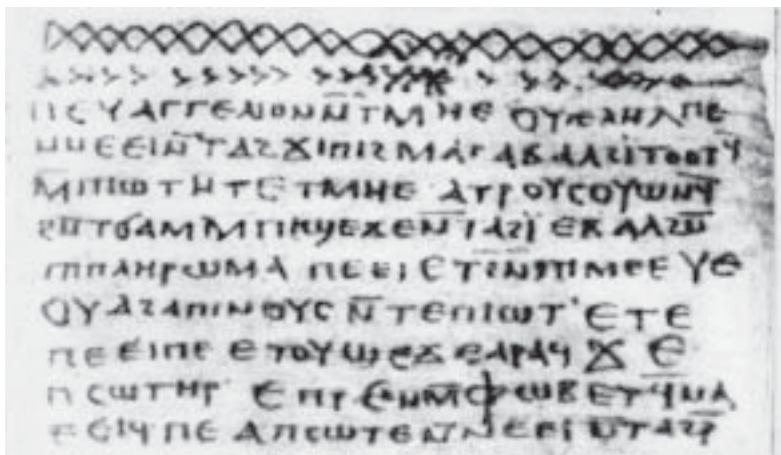 ⲡⲉⲩⲁⲅⲅⲉⲗⲓⲟⲛ ⲛ̄ⲧⲙⲏⲉ ⲟⲩⲧⲉⲗⲏⲗ ⲡⲉ
ⲛⲛⲉⲉⲓ ⲛ̄ⲧⲁϩϫⲓ ⲡⲓϩⲙⲁⲧ ⲁⲃⲁⲗ ϩⲓⲧⲟⲟⲧϥ
ⲙ̄ⲡⲓⲱⲧ ⲛⲧⲉ ⲧⲙⲏⲉ ⲁⲧⲣⲟⲩⲥⲟⲩⲱⲛϥ̄
ϩⲛ̄ ⲧϭⲁⲙ ⲙ̄ⲡⲓϣⲉϫⲉ ⲛ̄ⲧⲁϩⲓ̈ ⲉⲃⲁⲗ ϩⲛ̄
ⲡⲓⲡⲗⲏⲣⲱⲙⲁ ⲡⲉⲉⲓ ⲉⲧϩⲛ̄ ⲡⲓⲙⲉⲉⲩⲉ
ⲟⲩⲁϩⲁ ⲡⲓⲛⲟⲩⲥ ⲛ̄ⲧⲉ ⲡⲓⲱⲧ ⲉⲧⲉ
ⲡⲉⲉⲓ ⲡⲉ ⲉⲧⲟⲩϣⲉϫⲉ ⲁⲣⲁϥ ϫⲉ
ⲡⲥⲱⲧⲏⲣ ⲉⲡⲣⲉⲛ ⲙ̄ⲫⲱⲃ ⲉⲧϥ̄ⲛⲁ
ⲉⲉⲓϥ ⲡⲉ ⲁⲡⲥⲱⲧⲉ ⲛ̄ⲛⲉⲉⲓ ⲛ̄ⲧⲁϩⲣ̄